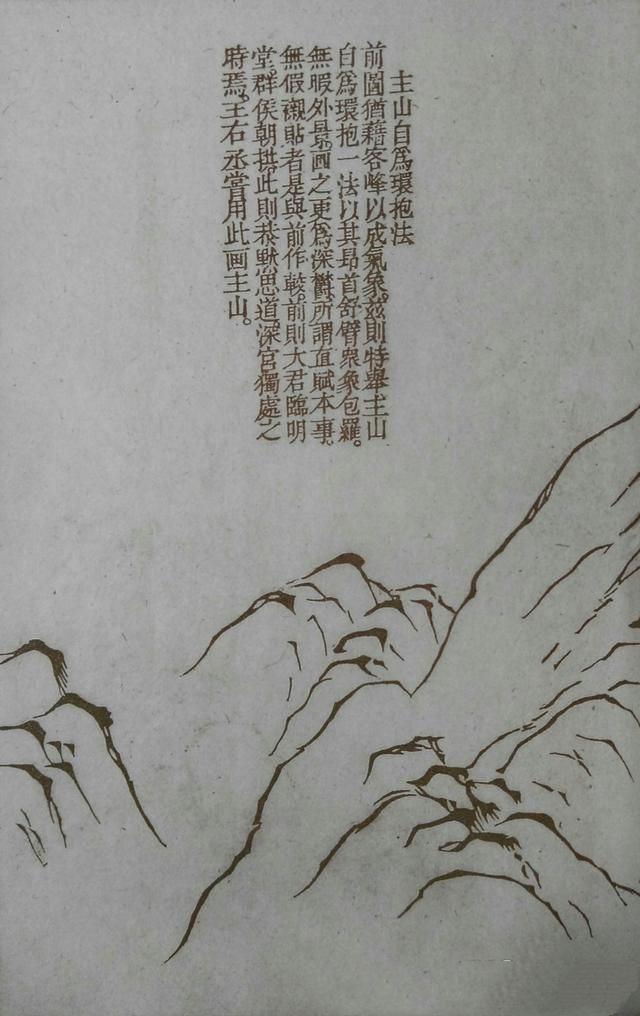 主山自爲環抱法
前圖猶藉客峰以成氣象。茲則特舉主山
自爲環抱一法以其昂首舒臂衆象包羅。
無暇外景。画之更爲深鬱所謂直賦本事。
無假襯貼者是與前作較。前則大君臨明
堂。群侯朝拱。此則恭默思道。深宮獨處之
時焉。王右丞嘗用此画主山。